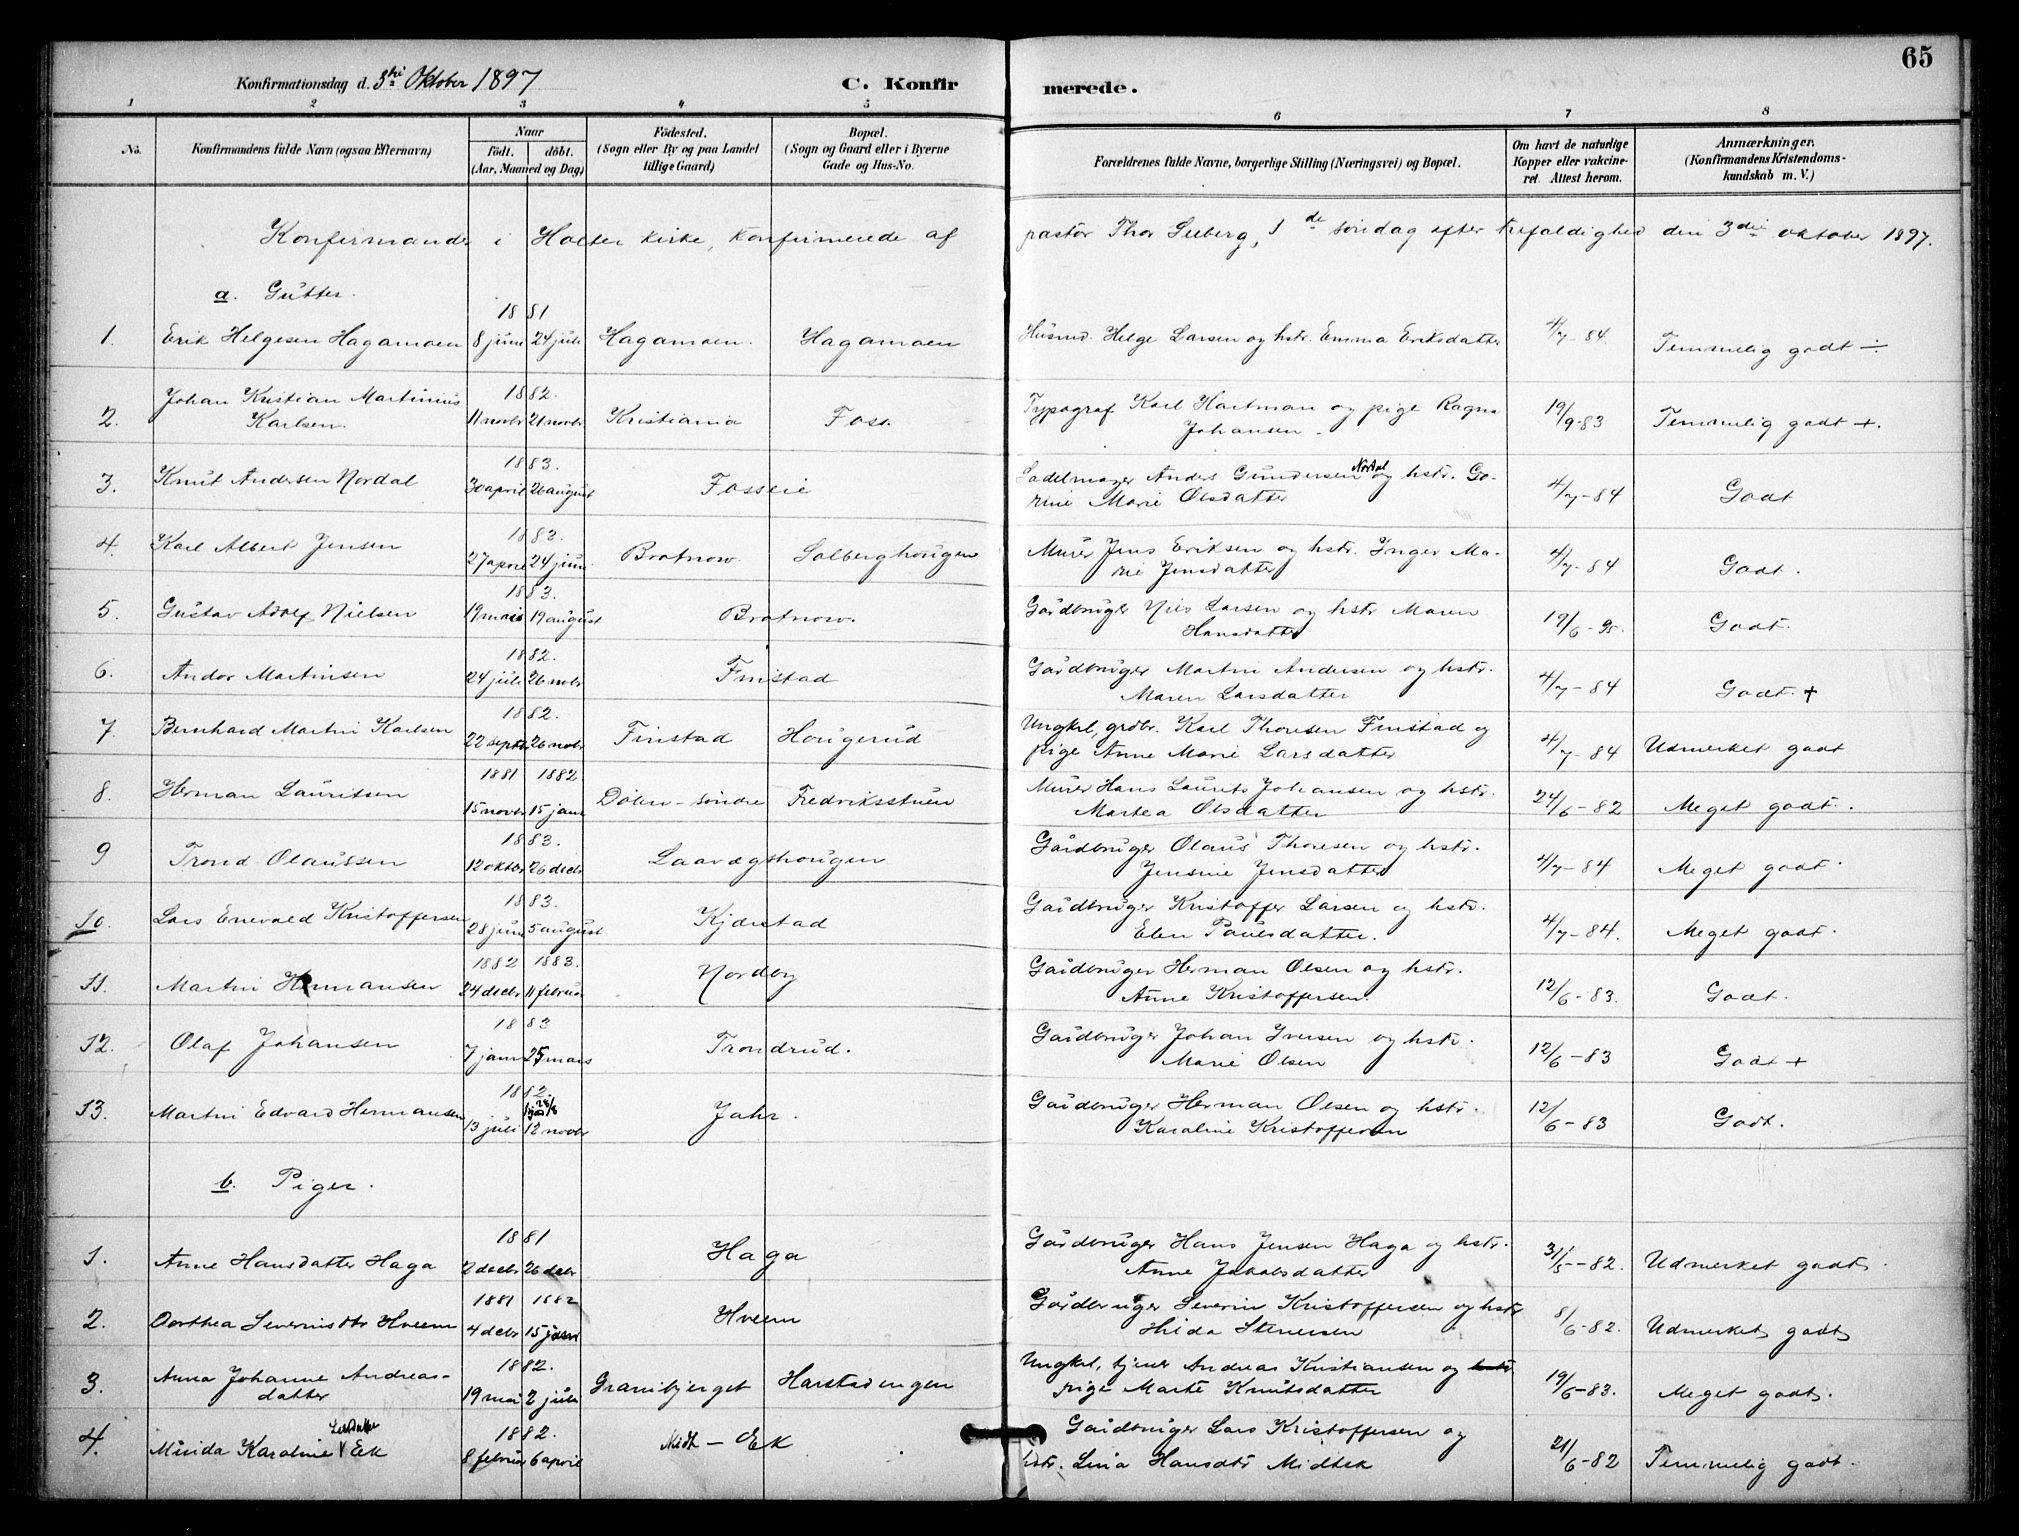 65
Konfirmationsdag d. 3die Oktober 1897
C. Konfirmerede.
1 2 3 4 5 6 7 8
No.
Konfirmandens fulde Navn (ogsaa Efternavn)
Naar
födt. döbt.
(Aar, Maaned og Dag)
Födested.
(Sogn eller By og paa Landet
tillige Gaard)
Bopæl.
(Sogn og Gaard eller i Byerne
Gade og Hus-No.
Forældrenes fulde Navne, borgerlige Stilling (Næringsvei) og Bopæl.
Om havt de naturlige
Kopper eller vakcine-
ret Attest herom.
Anmærkninger.
(Konfirmandens Kristendoms-
kundskab m. V.)
Konfirmander i Holter kirke, konfirmerede af pastor Thor Seeberg, 1de söndag efter trefaldighed den 3die oktober 1897.
a. Gutter.
1881
1. Erik Helgesen Hagamoen 8 juni 24 juli Hagamoen. Hagamoen Husmd. Helge Larsen og hstr. Emma Eriksdatter 4/7-84 Temmelig godt ÷
Johan Kristian Martinius 1882. Typograf Karl Hartman og pige Ragna
2. Karlsen. 11 novbr 21 novbr Kristiania Foss. Johansen. 19/9-83 Temmelig godt +.
1883.
3. Knut Andersen Nordal 30 april 26 august Fosseie Sadelmager Anders Gundersen Nordal og hstr. Go-
rine Marie Olsdatter 4/7-84 Godt
1883.
4. Karl Albert Jensen 27 april 24 juni Brotnow. Solberghougen Murer Jens Eriksen og hstr. Inger Ma-
rie Jensdatter 4/7-84 Godt.
1883.
5. Gustav Adolf Nielsen 19 mars 19 august Brotnow. Gårdbruger Nils Larsen og hstr Maren
Hansdatter 19/6-95. Godt.
1882.
6. Andor Martinsen 24 juli 26 novbr Finstad Gårdbruger Martin Andersen og hstr.
Maren Larsdatter 4/7-84 Godt. +
1882.
7. Bernhard Martin Karlsen 22 septbr 26 novbr Finstad Hougerud Ungkal, grdbr. Karl Thoresen Finstad og
pige Anne Marie Larsdatter 4/7-84 Udmerket godt
1881 1882
8. Herman Lauritsen 15 novbr 15 janr Dölen-söndre Fredriksstuen Murer Hans Laurits Johansen og hstr.
Martea Olsdatter 24/6-82 Meget godt.
1883.
9 Trond Olaussen 12 oktbr 26 decbr Laarægshougen Gårdbruger Olaus Thoresen og hstr.
Jensine Jensdatter 4/7-84 Meget godt.
1883.
10. Lars Enevald Kristoffersen 28 juni 5 august Kjærstad Gårdbruger Kristoffer Larsen og hstr.
Elen Paulsdatter. 4/7-84. Meget godt.
1882 1883.
11. Martin Hermansen 24 decbr 11 februar Nordby Gårdbruger Herman Olsen og hstr.
Anne Kristoffersen. 12/6-83. Godt.
1883
12. Olaf Johansen 7 janr 25 mars Trondrud. Gårdbruger Johan Iversen og hstr.
Marie Olsen 12/6-83 Godt +
1882.
13. Martin Edvard Hermansen 13 juli 12 novbr Jahr. Gårdbruger Herman Olsen og hstr.
Karoline Kristoffersen 12/6-83 Godt.
b. Piger.
1881
1. Anne Hansdatter Haga 2 decbr 26 decbr Haga Gårdbruger Hans Jensen Haga og hstr.
Anne Jakobsdatter 31/5-82. Udmerket godt.
1881 1882
2. Dorthea Severinsdtr Hveem 4 decbr 15 janr Hveem Gårdbruger Severin Kristoffersen og hstr
Hilda Stenersen 8/6-82. Udmerket godt
1882.
3. Anna Johanne Andreas-
datter 19 mai 2 juli Granibjerget Harstadengen Ungkal, tjener Andreas Kristiansen og hstr
pige Marte Knutsdatter 19/6-83. Meget godt.
1882.
4. Minda Karoline Larsdatter Ek 8 februar 6 april Midt-Ek Gårdbruger Lars Kristoffersen og
hstr. Lina Hansdtr Midtek 21/6-82 Temmelig godt.